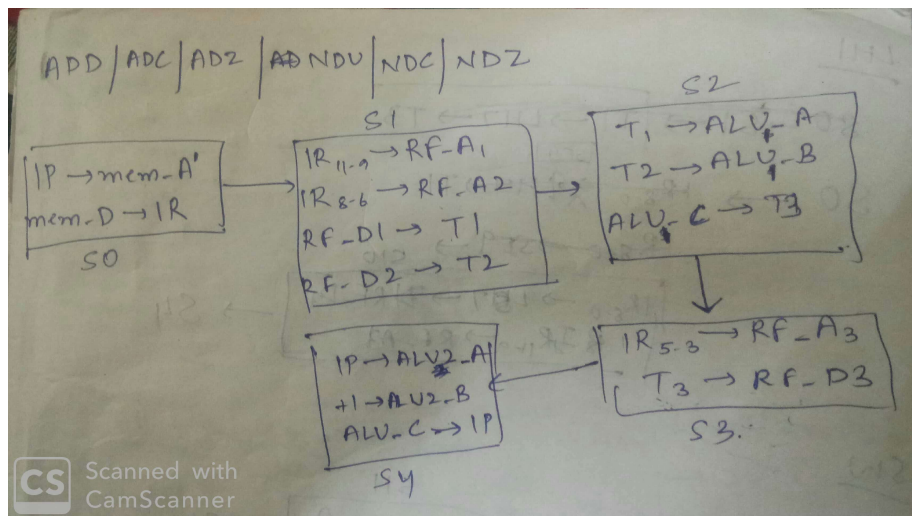 ADD/ADC/ADZ/NDU/NDC/NDZ
S0
IP → mem_A'
mem_D → IR
S1
IR 11-9 → RF_A1
IR 8-6 → RF_A2
RF_D1 → T1
RF_D2 → T2
S2
T1 → ALU_A
T2 → ALU_B
ALU_C → T3
IR 5-3 → RF_A3
T3 → RF_D3
S3.
IP → ALU2_A
+1 → ALU2_B
ALU_C → IP
S4
CS Scanned with
CamScanner